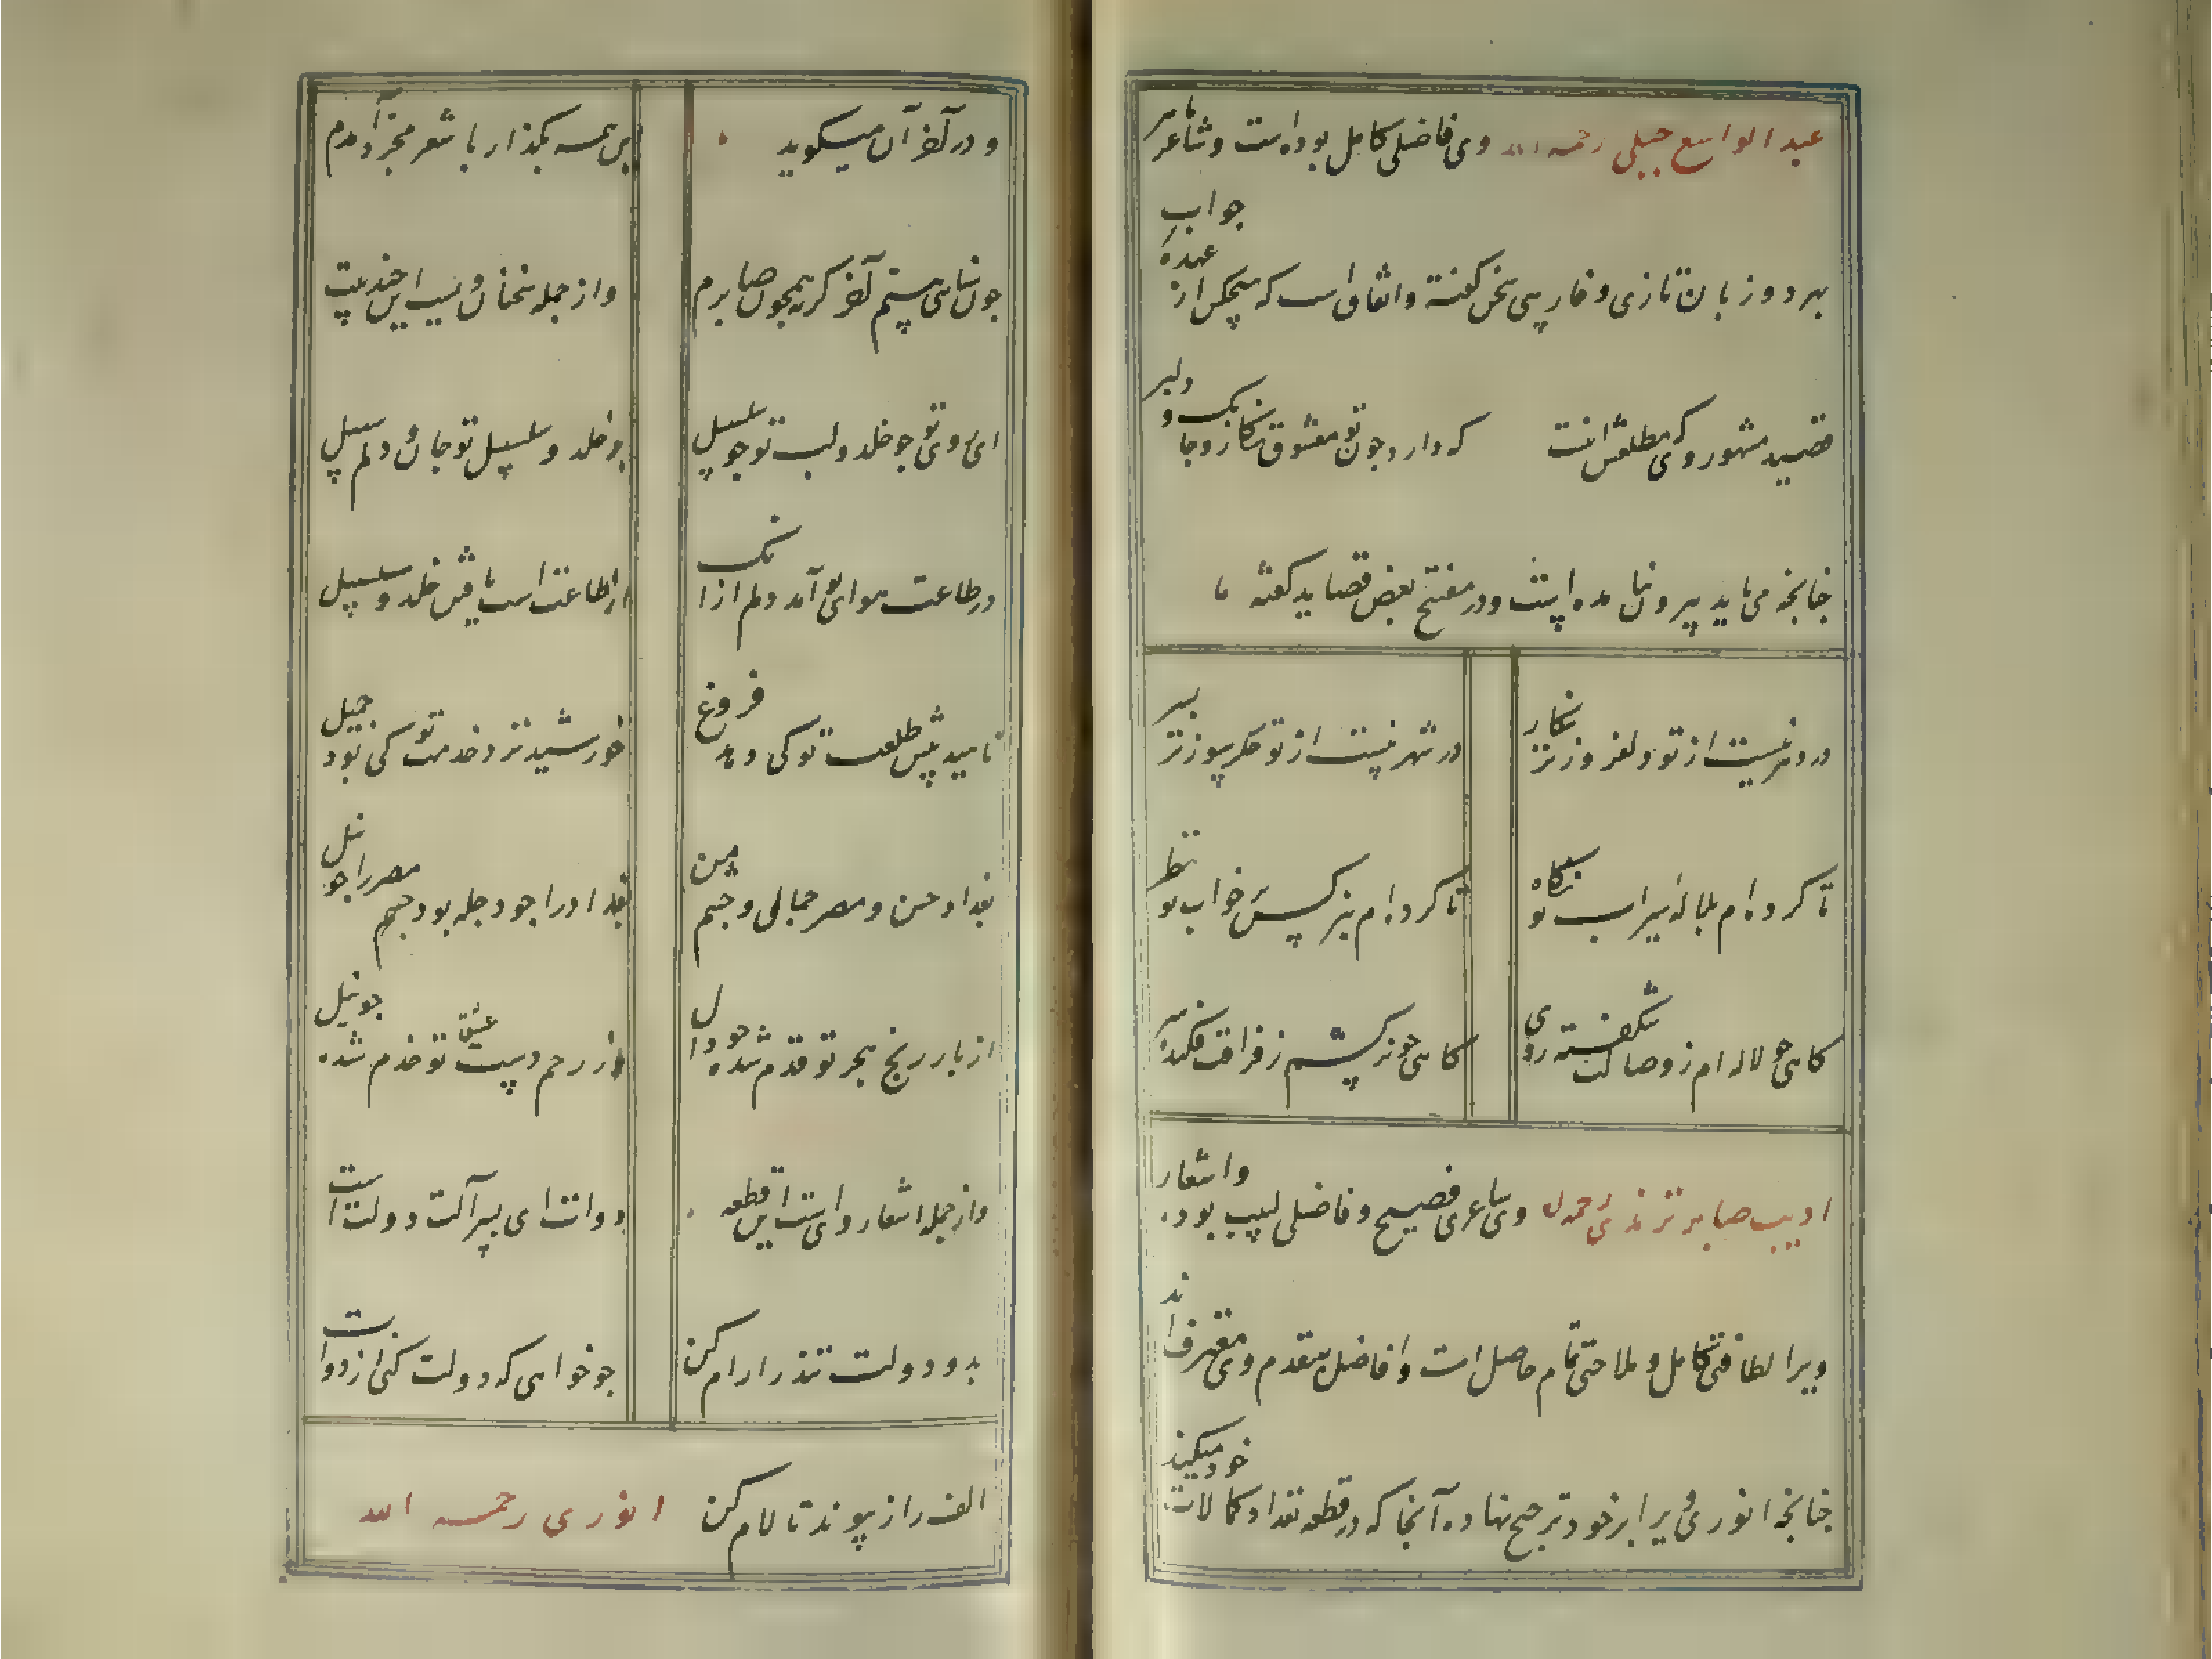 عبد الواسع جبلی رحمه الله وی فاضلی کامل بوده است و شاعر ماهر
بهر دو زبان تازی و فارسی سخن گفته و اتفاق است که هیچکس از عهده جواب
قصیده مشهور وی که مطلعش اینست که دارد چون تو معشوق نگار و چابک و دلبر
چنانچه می باید بیرون نیامده است و در مفتتح بعض قصاید گفته
در دهر نیست از تو دلفروز تر نگار
در شهر نیست از تو جگرسوز تر پسر
تا کرده ام بلاله سیراب تو نگاه
تا کرده ام بنرگس خواب تو نظر
گاهی چو لاله ام ز وصالت شکفته روی
گاهی چو نرگسم ز فراقت فکنده سر
ادیب صابر ترمذی رحمه ل وی شاعری فصیح و فاضلی لبیب بوده و اشعار
ویرا لطافتی کامل و ملاحتی تمام حاصل است و افاضل بتقدم وی معترف اند
چنانچه انوری ویرا بر خود ترجیح نهاده آنجا که در قطعه تعداد کمالات خود میکند
و در آخر آن میگوید
این همه بگذار با شعر مجرد آمدم
چون سنائی هستم آخر گر نه همچون صابرم
و از جمله سخنان وی است این چند بیت
ای روی تو چو خلد و لب تو چو سلسبیل
بر خلد و سلسبیل تو جان و دلم سبیل
در طاعت هوای تو آمد دلم از انک
از طاعت است یافتن خلد و سلسبیل
ناهید پیش طلعت تو کی دهد فروغ
خورشید نزد خدمت تو کی بود جمیل
بغداد حسن و مصر جمالی و چشم من
بغداد را چو دجله بود چشم مصر را چو نیل
از بار رنج هجر تو قدم شده چو دال
وز رحم دست عشق تو خدم شده چو نیل
و از جمله اشعار وی است این قطعه
دوات ای پسر آلت دولت است
بدو دولت تند را رام کن
چو خواهی که دولت کنی از دوات
الف را ز پیوند تا لام کن انوری رحمه الله